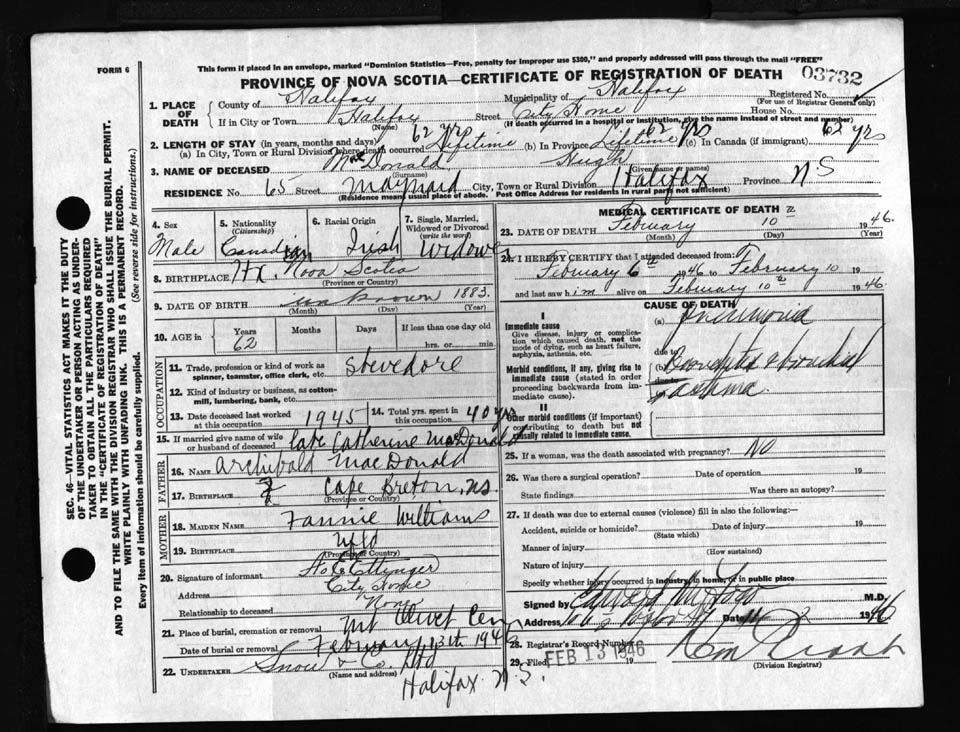 This form if placed in an envelope, marked "Dominion Statistics—Free, penalty for improper use $300," and properly addressed will pass through the mail "FREE"
FORM 6
PROVINCE OF NOVA SCOTIA—CERTIFICATE OF REGISTRATION OF DEATH
03732
1. PLACE OF DEATH
County of Halifax Municipality of Halifax Registered No.
(For use of Registrar General only)
If in City or Town Halifax Street City Home House No.
(Name) (If death occurred in a hospital or institution, give the name instead of street and number)
2. LENGTH OF STAY (in years, months and days)
62 yrs 62 yrs 62 yrs
(a) In City, Town or Rural Division where death occurred Lifetime (b) In Province Lifetime (c) In Canada (if immigrant)
3. NAME OF DECEASED MacDonald Hugh
(Surname) (Given name or names)
RESIDENCE No. 65 Street Maynard City, Town or Rural Division Halifax Province N S
(Residence means usual place of abode. Post Office Address for residents in rural parts not sufficient)
4. Sex
Male
5. Nationality
(Citizenship)
Canadian
6. Racial Origin
Irish
7. Single, Married, Widowed or Divorced
(write the word)
Widower
8. BIRTHPLACE Hfx. Nova Scotia
(Province or Country)
9. DATE OF BIRTH unknown 1883.
(Month) (Day) (Year)
10. AGE in
Years Months Days If less than one day
62 hrs. or min.
OCCUPATION
11. Trade, profession or kind of work as spinner, teamster, office clerk, etc. stevedore
12. Kind of industry or business, as cotton-mill, lumbering, bank, etc.
13. Date deceased last worked at this occupation 1945
14. Total yrs. spent in this occupation 40 yrs
15. If married give name of wife or husband of deceased late Catherine MacDonald
FATHER
16. NAME Archibald MacDonald
17. BIRTHPLACE Cape Breton, NS
(Province or Country)
MOTHER
18. MAIDEN NAME Fannie Williams
19. BIRTHPLACE Nfld
(Province or Country)
20. Signature of informant Ettinger
Address City Home
Relationship to deceased None
21. Place of burial, cremation or removal Mt Olivet Cem
Date of burial or removal February 13th 1946
22. UNDERTAKER Snow & Co. Ltd
(Name and address)
Halifax. N.S.
MEDICAL CERTIFICATE OF DEATH
23. DATE OF DEATH February 10th 1946.
(Month) (Day) (Year)
24. I HEREBY CERTIFY that I attended deceased from:
February 6th 1946 to February 10 19
and last saw him alive on February 10th 1946.
CAUSE OF DEATH
I
Immediate cause
Give disease, injury or complication which caused death, not the mode of dying, such as heart failure, asphyxia, asthenia, etc.
(a) Pneumonia
due to
Morbid conditions, if any, giving rise to immediate cause (stated in order proceeding backwards from immediate cause).
(b) Bronchitis & bronchial
asthma.
II
Other morbid conditions (if important) contributing to death but not causally related to immediate cause.
25. If a woman, was the death associated with pregnancy? NO
26. Was there a surgical operation? Date of operation 19
State findings Was there an autopsy?
27. If death was due to external causes (violence) fill in also the following:—
Accident, suicide or homicide? Date of injury 19
(State which)
Manner of injury
(How sustained)
Nature of injury
Specify whether injury occurred in industry, in home, or in public place
Signed by Edward M. M.D.
Address Date 1946
28. Registrar's Record Number
29. Filed FEB 13 1946 19
(Division Registrar)
SEC. 46—VITAL STATISTICS ACT MAKES IT THE DUTY OF THE UNDERTAKER OR PERSON ACTING AS UNDERTAKER TO OBTAIN ALL THE PARTICULARS REQUIRED IN THE "CERTIFICATE OF REGISTRATION OF DEATH" AND TO FILE THE SAME WITH THE DIVISION REGISTRAR WHO SHALL ISSUE THE BURIAL PERMIT.
WRITE PLAINLY WITH UNFADING INK. THIS IS A PERMANENT RECORD.
Every item of information should be carefully supplied. (See reverse side for instructions.)